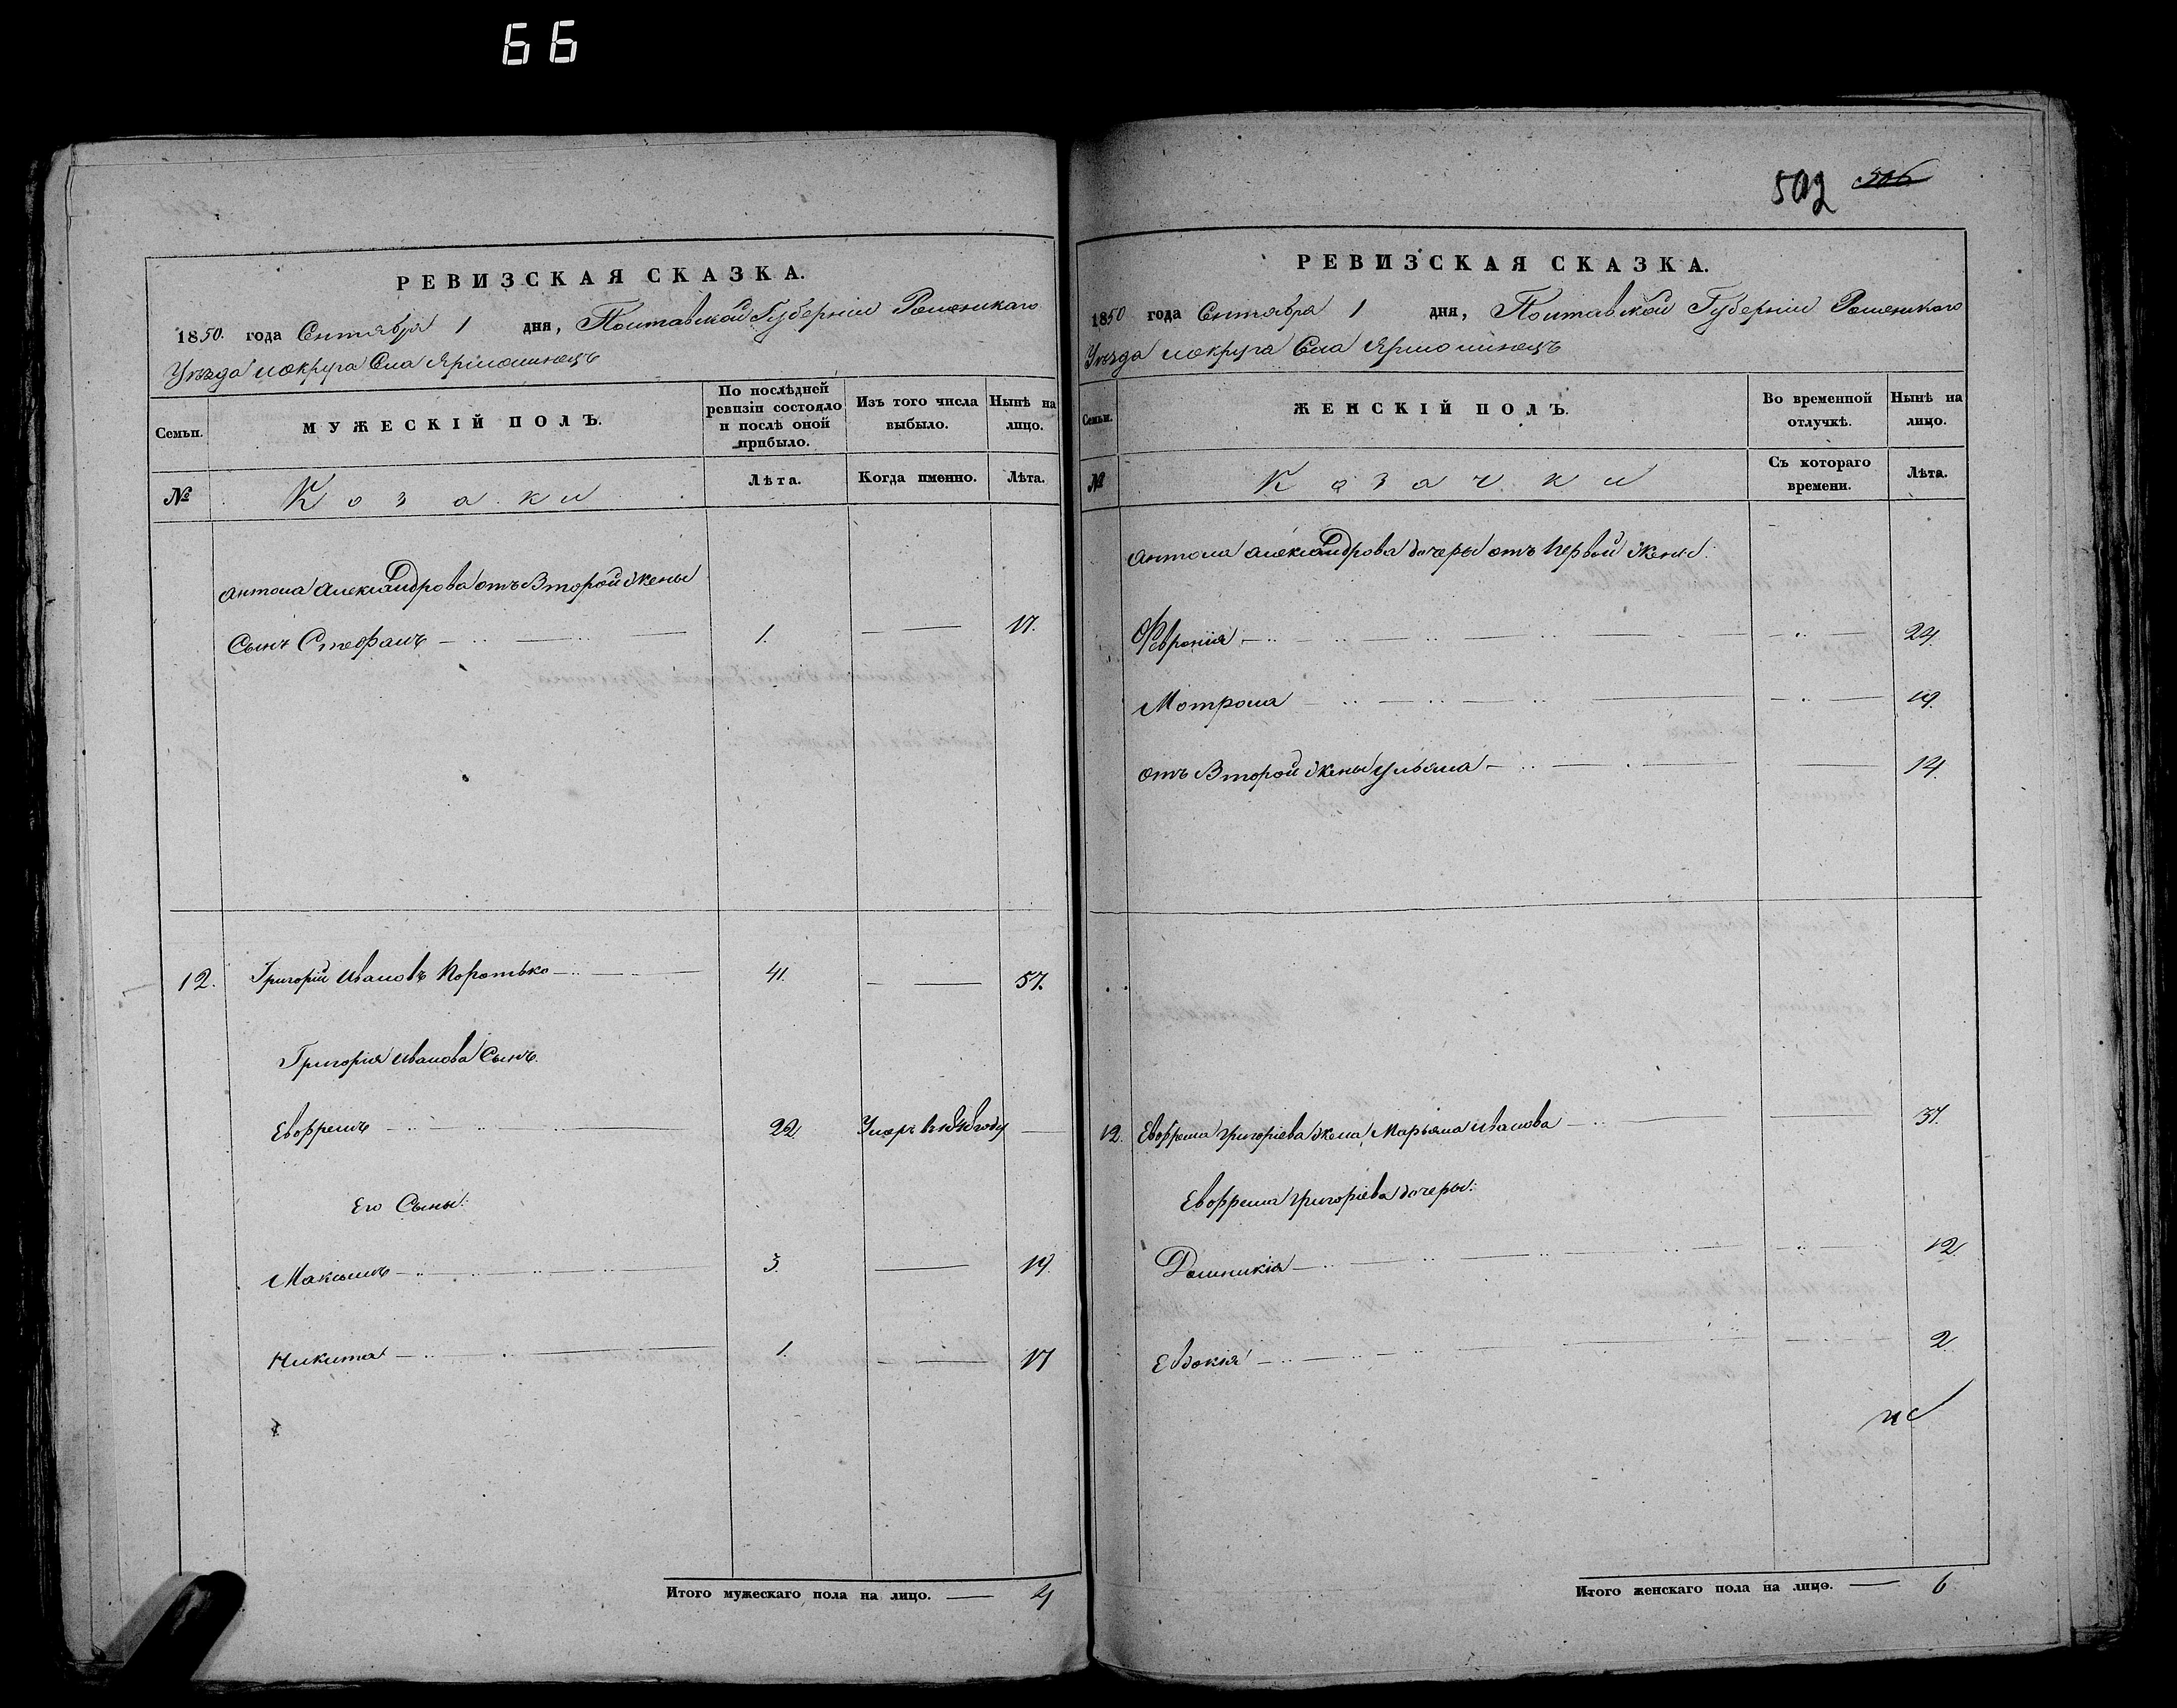 66
502 506
РЕВИЗСКАЯ СКАЗКА.
1850. года Сентября 1 дня, Полтавской Губерніи Роменскаго
Уѣзда и округа Села Ярмолинецъ
Семьи.
МУЖЕСКІЙ ПОЛЪ.
По послѣдней ревизіи состояло и послѣ оной прибыло.
Изъ того числа выбыло.
Нынѣ на лицо.
№
Козаки
Лѣта.
Когда именно.
Лѣта.
Антона Александрова отъ Второй жены
Сынъ Стефанъ 1. 17.
12. Григорій Ивановъ Коротько 41. 57.
Григорія Иванова Сынъ
Евфремъ 22 Умеръ въ 1848 году
Его Сыны:
Максимъ 3. 19.
Никита 1. 17
Итого мужескаго пола на лицо. 4
РЕВИЗСКАЯ СКАЗКА.
1850 года Сентября 1 дня, Полтавской Губерніи Роменскаго
Уѣзда и округа Села Ярмолинецъ
Семьи.
ЖЕНСКІЙ ПОЛЪ.
Во временной отлучкѣ.
Нынѣ на лицо.
№
Козачки
Съ котораго времени.
Лѣта.
Антона Александрова дочеры отъ Первой жены:
Февронія 24.
Мотрона 19.
отъ Второй жены Ульяна 14.
12. Евфрема Григоріева жена, Марьяна Иванова 37.
Евфрема Григоріева дочеры:
Домникія 12.
Евдокія 2
Итого женскаго пола на лицо. 6